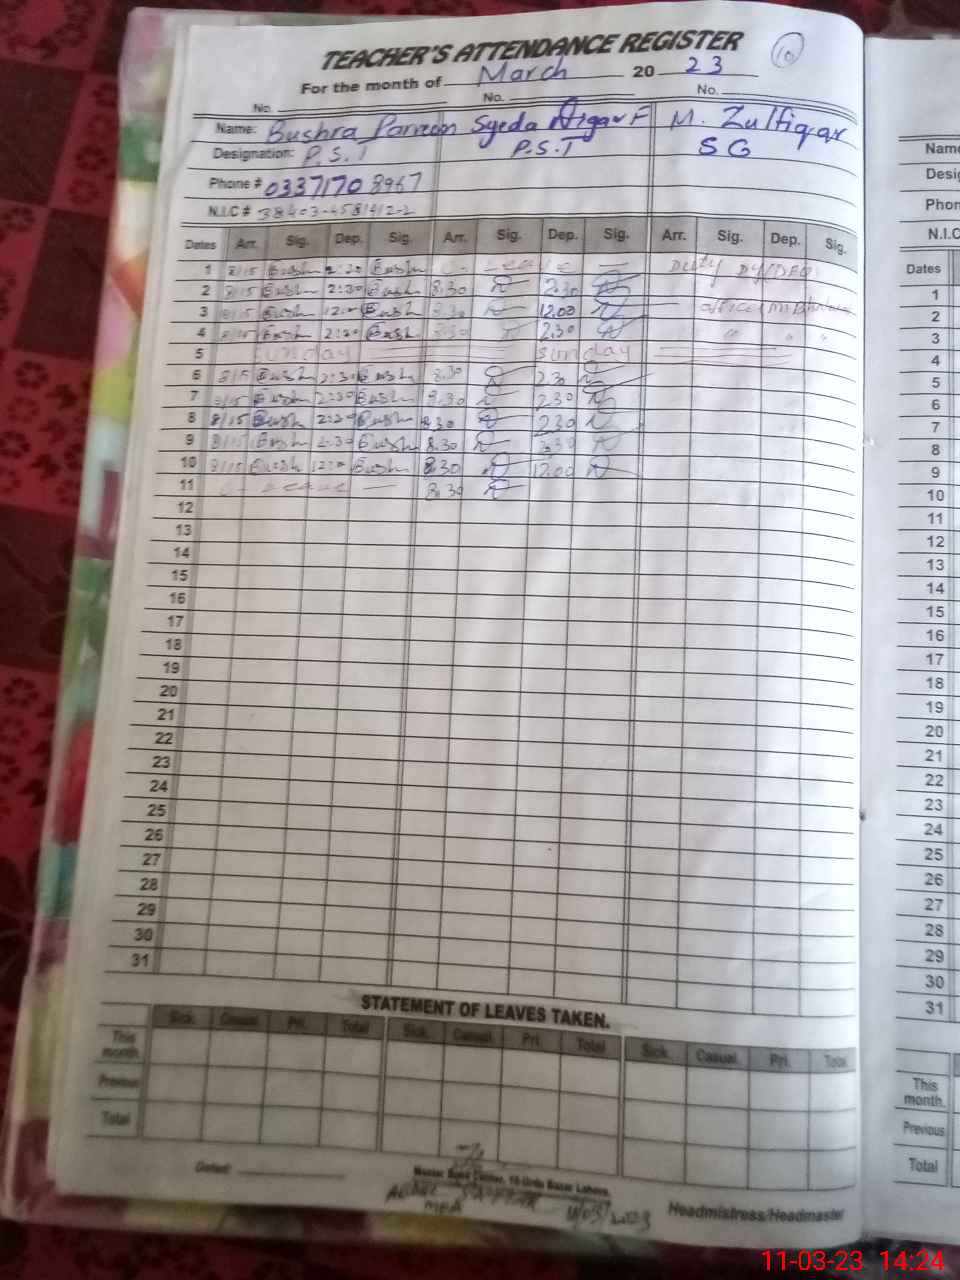 TEACHER'S ATTENDANCE REGISTER
10
For the month of March 2023
No. No. No.
Name: Bushra Parveen Syeda Nigar F M. Zulfiqar
Designation: P.S.T P.S.T SG
Phone # 03371708967
N.I.C #
Dates Arr. Sig. Dep. Sig. Arr. Sig. Dep. Sig. Arr. Sig. Dep. Sig.
1 8/15 Bush 2:30 Bush C- Leave — Duty
2 8/15 Bush 2:30 Bush 8.30 2.30
3 8/15 Bush 12:00 Bush 8.30 12.00 office
4 8/15 Bush 2:30 Bush 8.30 2.30 " " "
5 Sunday Sunday
6 8/15 Bush 2:30 Bush 8.30 2.30
7 8/15 Bush 2:30 Bush 8.30 2.30
8 8/15 Bush 2:30 Bush 8.30 2.30
9 8/15 Bush 2:30 Bush 8.30 2.30
10 8/15 Bush 12:00 Bush 8.30 12.00
11 C- Leave — 8.30
12
13
14
15
16
17
18
19
20
21
22
23
24
25
26
27
28
29
30
31
STATEMENT OF LEAVES TAKEN.
Sick. Casual. Pri. Total Sick. Casual. Pri. Total Sick. Casual. Pri. Total
This month.
Previous
Total
Dated:
Master Book Center, 10-Urdu Bazar Lahore.
MEA 11/03/2023
Headmistress/Headmaster
Name
Desig
Phon
N.I.C
Dates
1
2
3
4
5
6
7
8
9
10
11
12
13
14
15
16
17
18
19
20
21
22
23
24
25
26
27
28
29
30
31
This month.
Previous
Total
11-03-23 14:24